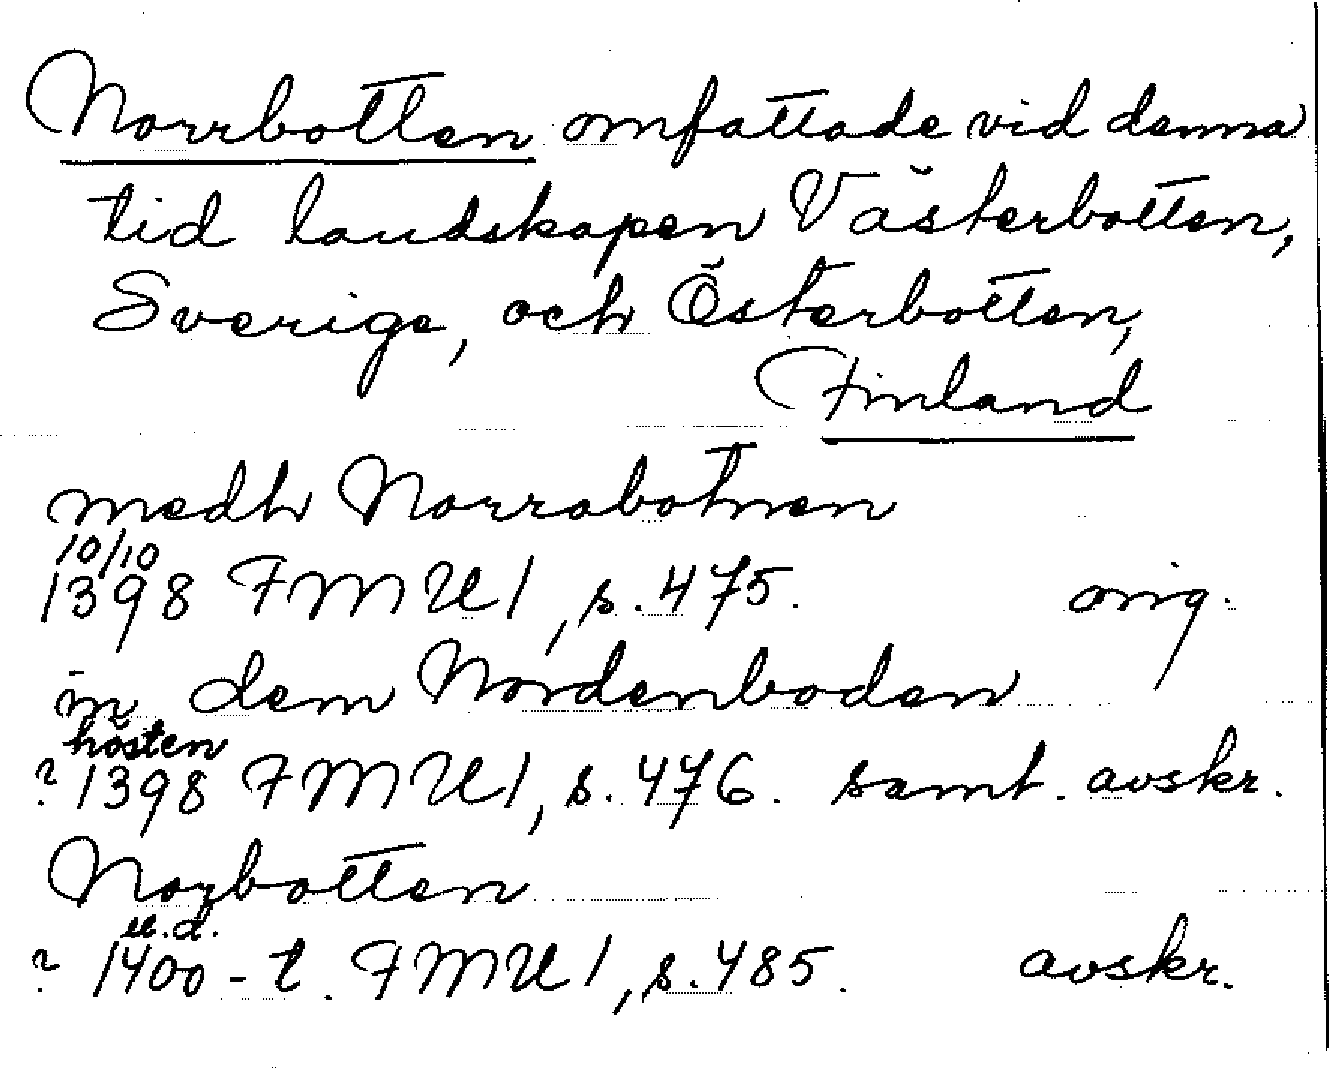 Norrbotten omfattade vid denna
tid landskapen Västerbotten,
Sverige, och Österbotten,
Finland
medh Norrabotnen
10/10
1398 FMU 1, s. 475. orig.
in dem Nordenboden
hösten
? 1398 FMU 1, s. 476. samt. avskr.
Norbotten
u.d.
? 1400-t. FMU 1, s. 485. avskr.